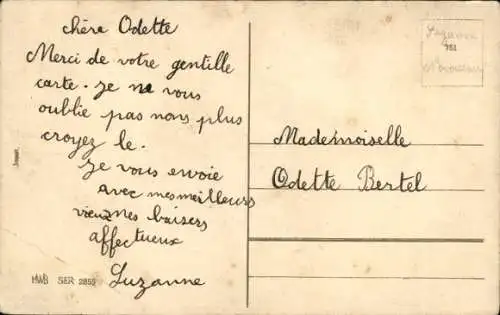 chère Odette
Merci de votre gentille
carte. je ne vous
oublie pas nons plus
croyez le.
je vous envoie
avec mes meilleurs
vieux mes baisers
affectueux
Suzanne
HWB SER 2852
Suzanne
761
Mademoiselle
Odette Bertel